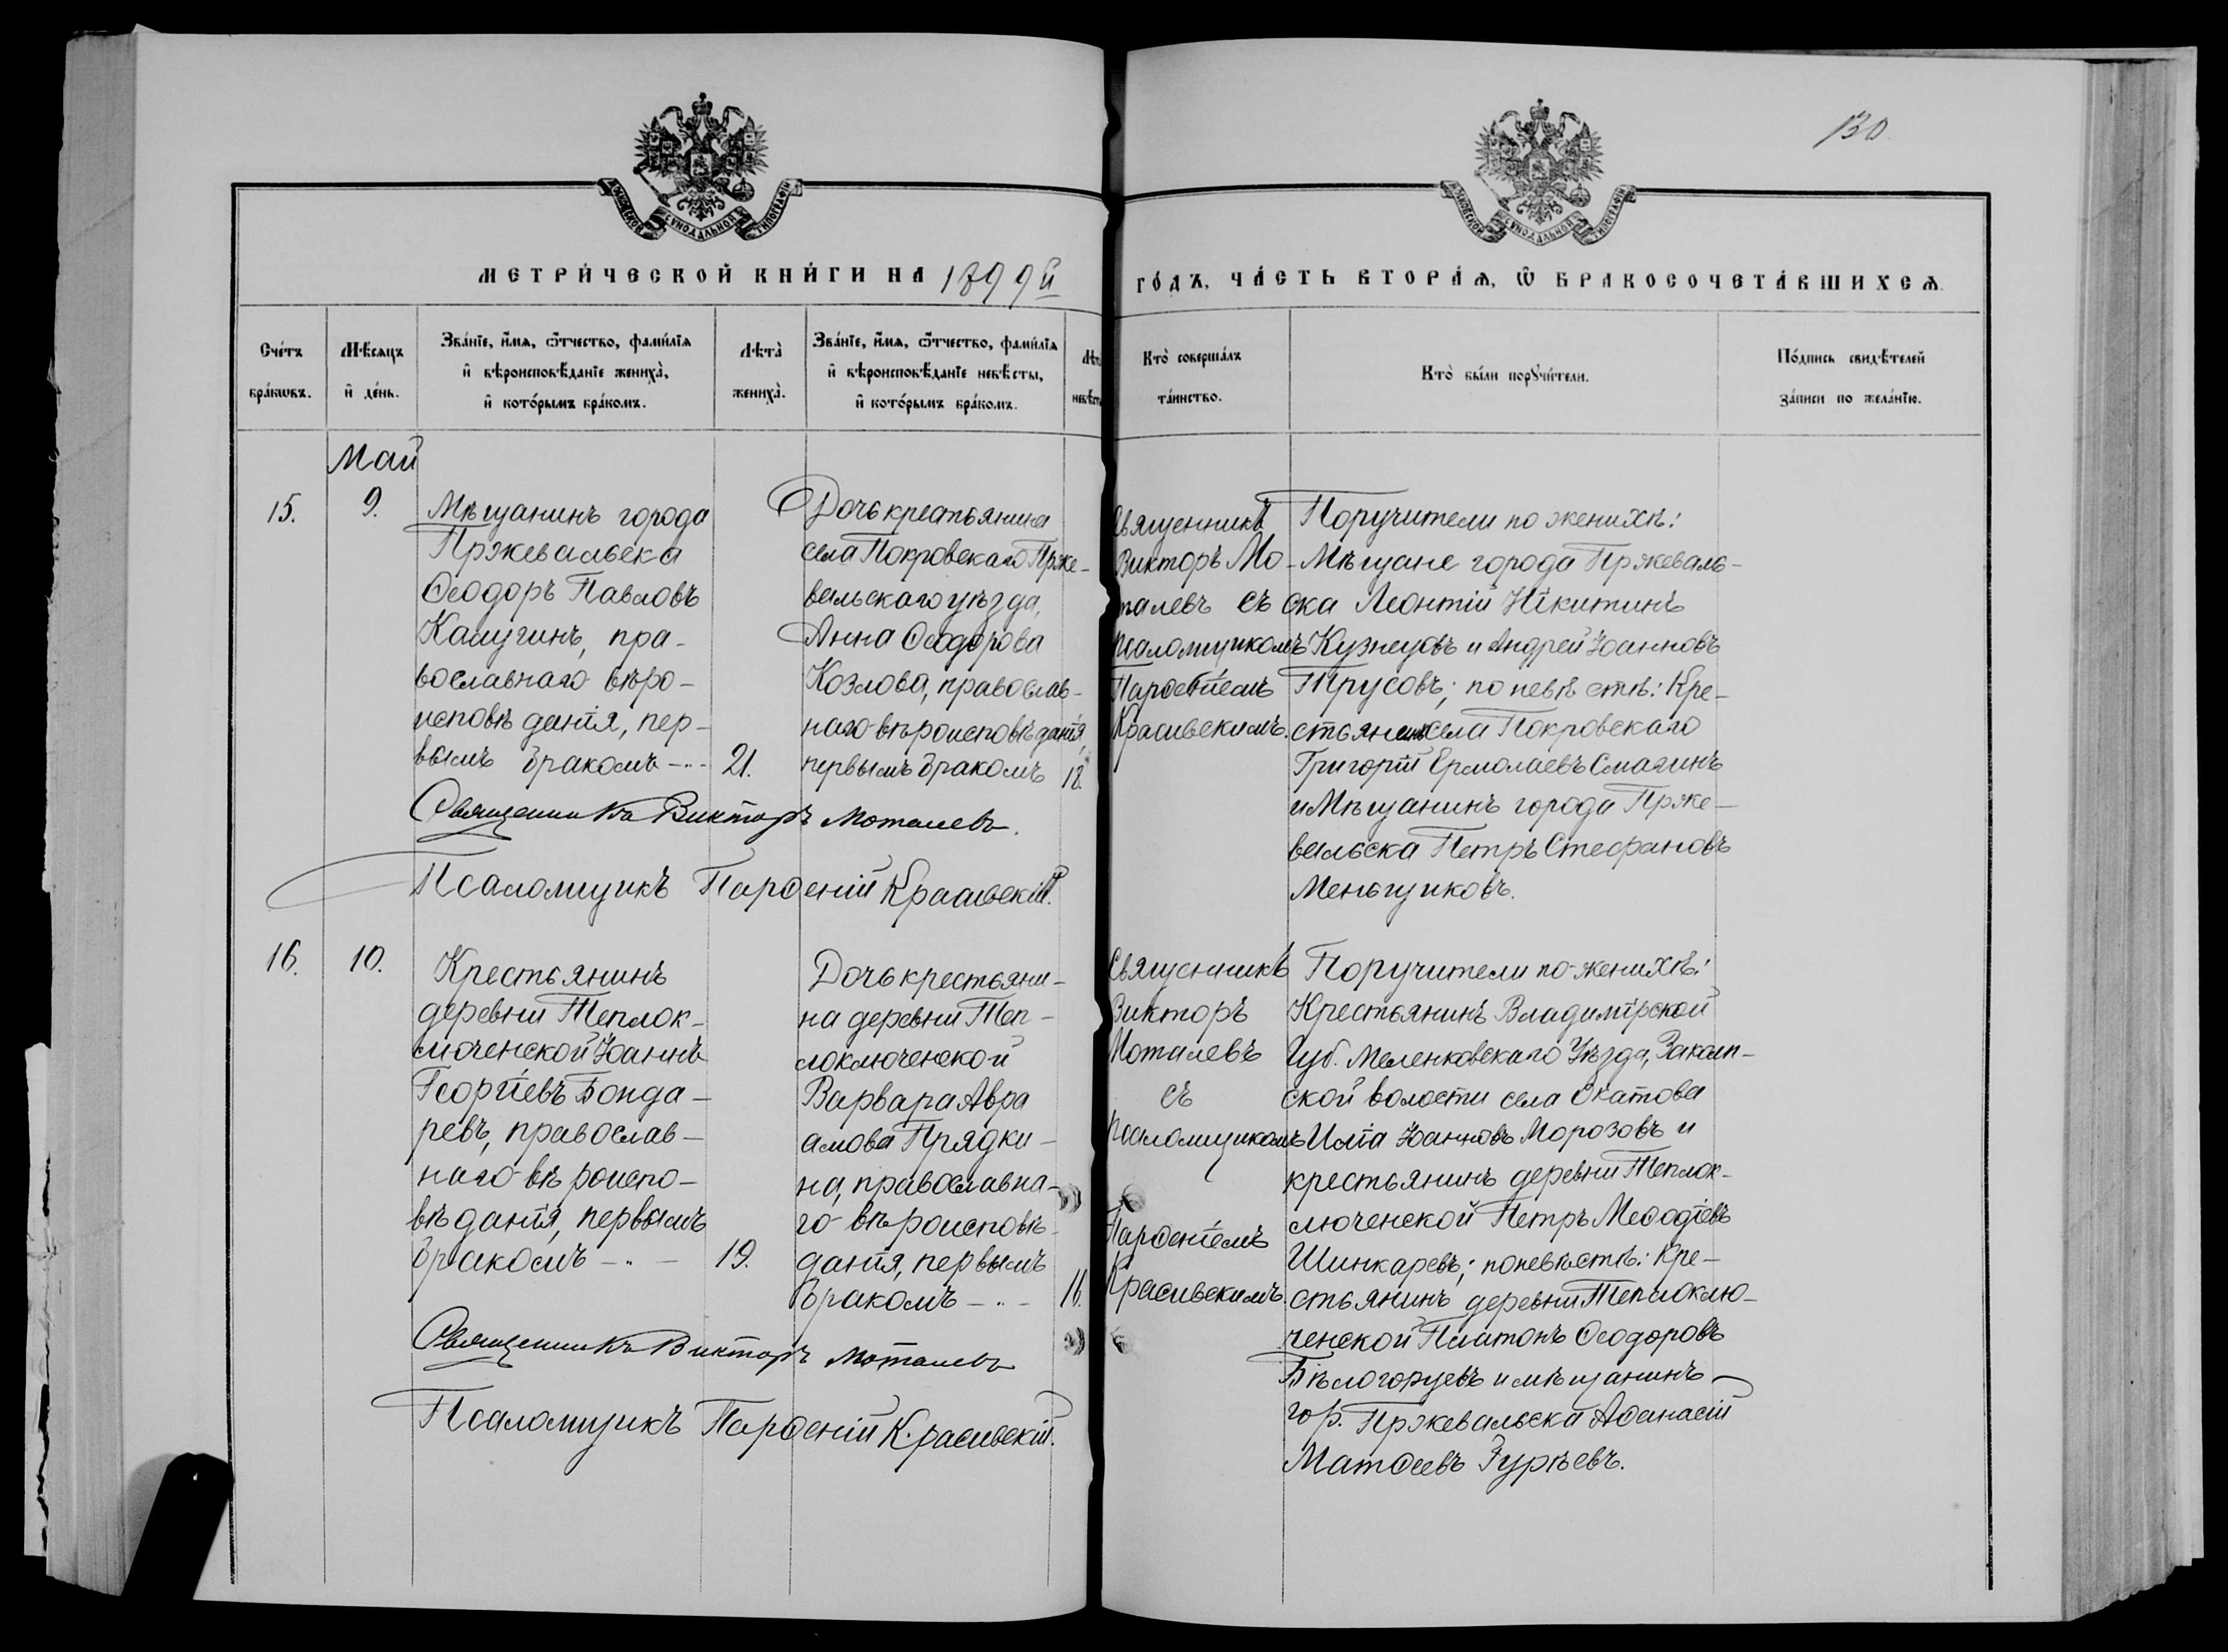 130.
МОСКОВСКОЙ СѴНОДАЛЬНОЙ ТИПОГРАФІИ
МОСКОВСКОЙ СѴНОДАЛЬНОЙ ТИПОГРАФІИ
МЕТРИ́ЧЕСКОЙ КНИ́ГИ НА 1899й
ГО́ДЪ, ЧА́СТЬ ВТОРА́Ѧ, Ѽ БРАКОСОЧЕТА́ВШИХСѦ.
Сче́тъ
бра́кѡвъ.
Мѣ́сяцъ
и҆ де́нь.
Зва́нїе, и҆́мѧ, ѻ҆́тчество, фами́лїѧ
и҆ вѣроисповѣ́данїе жениха̀,
и҆ кото́рымъ бра́комъ.
Лѣ́та̀
жениха̀.
Зва́нїе, и҆́мѧ, ѻ҆́тчество, фами́лїѧ
и҆ вѣроисповѣ́данїе невѣ́сты,
и҆ кото́рымъ бра́комъ.
Лѣта
невѣст
Кто̀ соверша́лъ
та́инство.
Кто̀ бы́ли порꙋчи́тели.
По́дпись свидѣ́телей
за́писи по жела́нїю.
Май
15.
9.
Мѣщанинъ города
Пржевальска
Ѳеодоръ Павловъ
Калугинъ, пра-
вославнаго вѣро-
исповѣданія, пер-
вымъ бракомъ -..-
21.
Дочь крестьянина
села Покровскаго Прже-
вальскаго уѣзда,
Анна Ѳеодорова
Козлова, православ-
наго вѣроисповѣданія,
первымъ бракомъ
18.
Священникъ
Викторъ Мо-
талевъ съ
псаломщикомъ
Парѳеніемъ
Красивскимъ.
Поручители по женихѣ:
Мѣщане города Пржеваль-
ска Леонтій Никитинъ
Кузнецовъ и Андрей Іоанновъ
Трусовъ; по невѣстѣ: Кре-
стьянинъ села Покровскаго
Григорій Ермолаевъ Смагинъ
и Мѣщанинъ города Прже-
вальска Петръ Стефановъ
Меньщиковъ.
Священникъ Викторъ Моталевъ.
Псаломщикъ Парѳеній Красивскій.
16.
10.
Крестьянинъ
деревни Теплок-
люченской Іоаннъ
Георгіевъ Бонда-
ревъ, православ-
наго вѣроиспо-
вѣданія, первымъ
бракомъ -..-
19.
Дочь крестьяни-
на деревни Теп-
лоключенской
Варвара Авра
амова Прядки-
на, православна-
го вѣроисповѣ-
данія, первымъ
бракомъ -..-
16.
Священникъ
Викторъ
Моталевъ
съ
псаломщикомъ
Парѳеніемъ
Красивскимъ.
Поручители по женихѣ:
Крестьянинъ Владимірской
Губ. Меленковскаго Уѣзда, Заколп-
ской волости села Окатова
Илія Іоанновъ Морозовъ и
крестьянинъ деревни Теплок-
люченской Петръ Меѳодіевъ
Шинкаревъ; по невѣстѣ: Кре-
стьянинъ деревни Теплоклю-
ченской Платонъ Ѳеодоровъ
Бѣлогорцевъ и мѣщанинъ
гор. Пржевальска Аѳанасій
Матѳеевъ Гурьевъ.
Священникъ Викторъ Моталевъ
Псаломщикъ Парѳеній Красивскій.